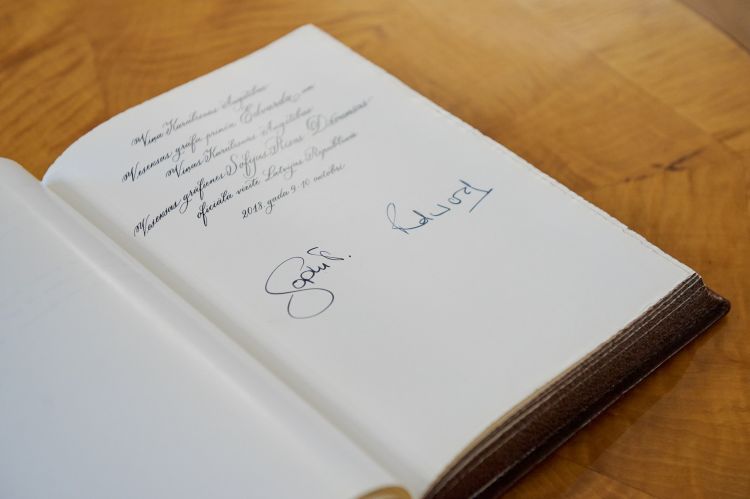 Viņa Karaliskās Augstības
Veseksas grāfa prinča Edvarda un
Viņas Karaliskās Augstības
Veseksas grāfienes Sofijas Rīsas Džonsones
oficiālā vizīte Latvijas Republikā
2013. gada 9.-10. oktobrī
Edward
Sophie.